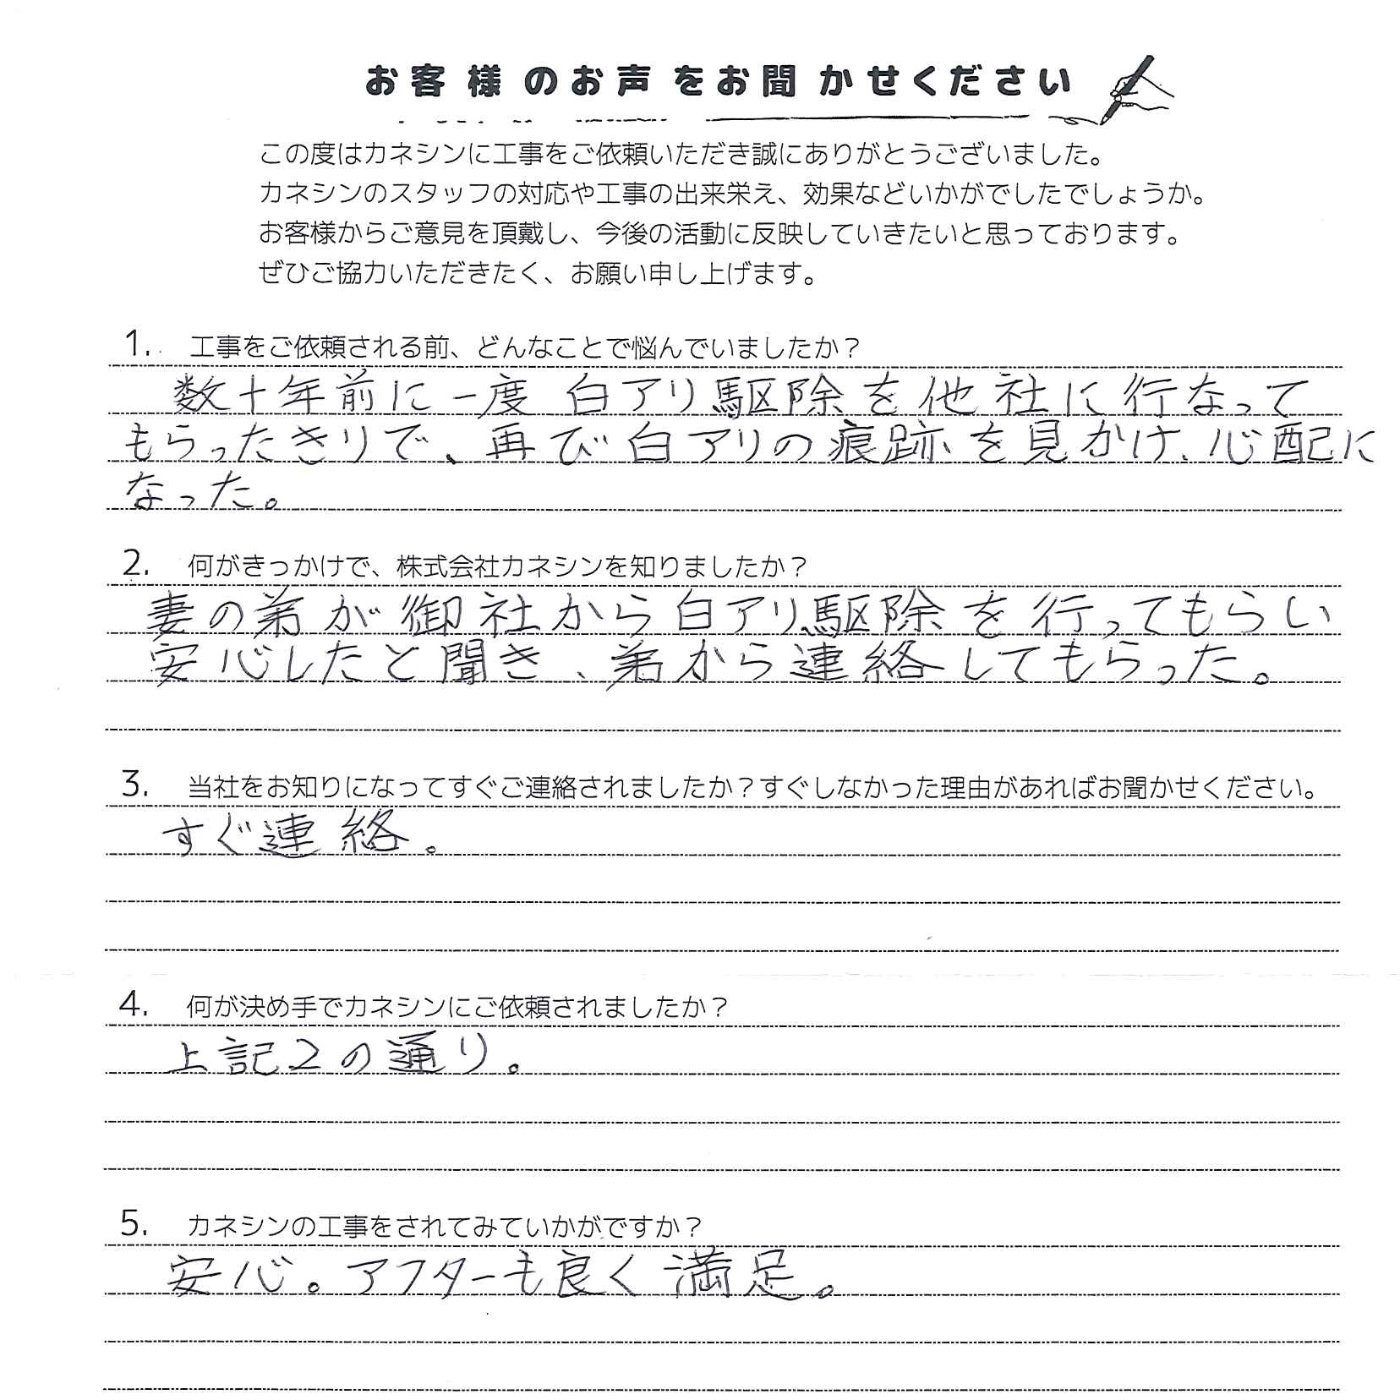 お客様のお声をお聞かせください
この度はカネシンに工事をご依頼いただき誠にありがとうございました。
カネシンのスタッフの対応や工事の出来栄え、効果などいかがでしたでしょうか。
お客様からご意見を頂戴し、今後の活動に反映していきたいと思っております。
ぜひご協力いただきたく、お願い申し上げます。
1. 工事をご依頼される前、どんなことで悩んでいましたか?
数十年前に一度 白アリ駆除を他社に行なって
もらったきりで、再び白アリの痕跡を見かけ、心配に
なった。
2. 何がきっかけで、株式会社カネシンを知りましたか?
妻の弟が御社から白アリ駆除を行ってもらい
安心したと聞き、弟から連絡してもらった。
3. 当社をお知りになってすぐご連絡されましたか?すぐしなかった理由があればお聞かせください。
すぐ連絡。
4. 何が決め手でカネシンにご依頼されましたか?
上記2の通り。
5. カネシンの工事をされてみていかがですか?
安心。アフターも良く満足。